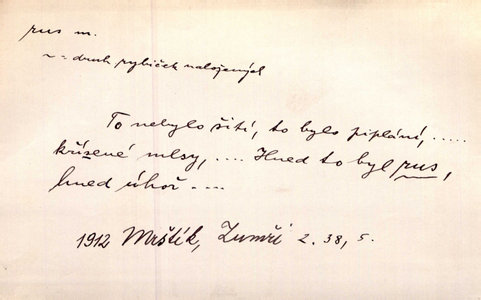 rus m.
~ = druh rybiček naložených
To nebylo šití, to bylo piplání, .....
křísené mlsy, .... Hned to byl rus,
hned úhoř ....
1912 Mrštík, Zumři 2. 38, 5.